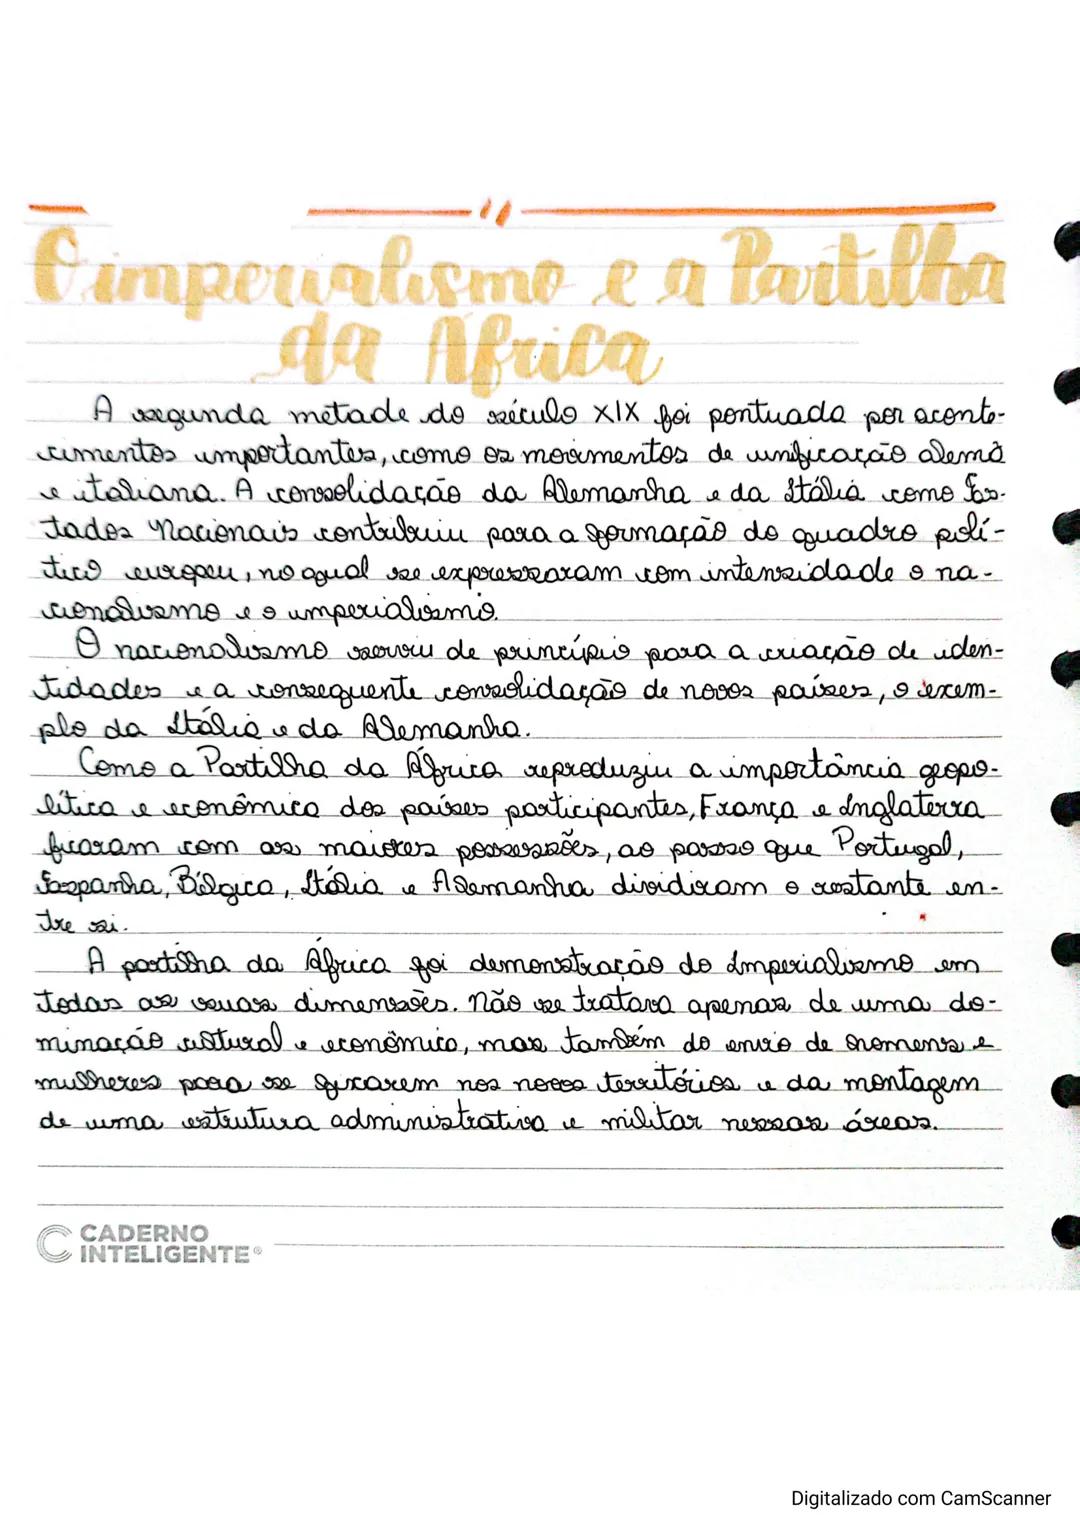 O imperialismo e a Partilha
da África
A segunda metade do século XIX foi pontuada por aconte-
cimentos importantes, como os movimentos de unificação alemã
e italiana. A consolidação da Alemanha e da Itália como Es-
tados Nacionais contribuiu para a formação do quadro polí-
tico europeu, no qual se expressaram com intensidade o na-
cionalismo e o imperialismo.
O nacionalismo serviu de princípio para a criação de iden-
tidades e a consequente consolidação de novos países, o exem-
plo da Itália e da Alemanha.
Como a Partilha da África reproduziu a importância geopo-
lítica e econômica dos países participantes, França e Inglaterra
ficaram com as maiores possessões, ao passo que Portugal,
Espanha, Bélgica, Itália e Alemanha dividiram o restante en-
tre si.
A partilha da África foi demonstração do Imperialismo em
todas as suas dimensões. Não se tratava apenas de uma do-
minação cultural e econômica, mas também do envio de homens e
mulheres para se fixarem nos novos territórios e da montagem
de uma estrutura administrativa e militar nessas áreas.
CADERNO
INTELIGENTE®
Digitalizado com CamScanner